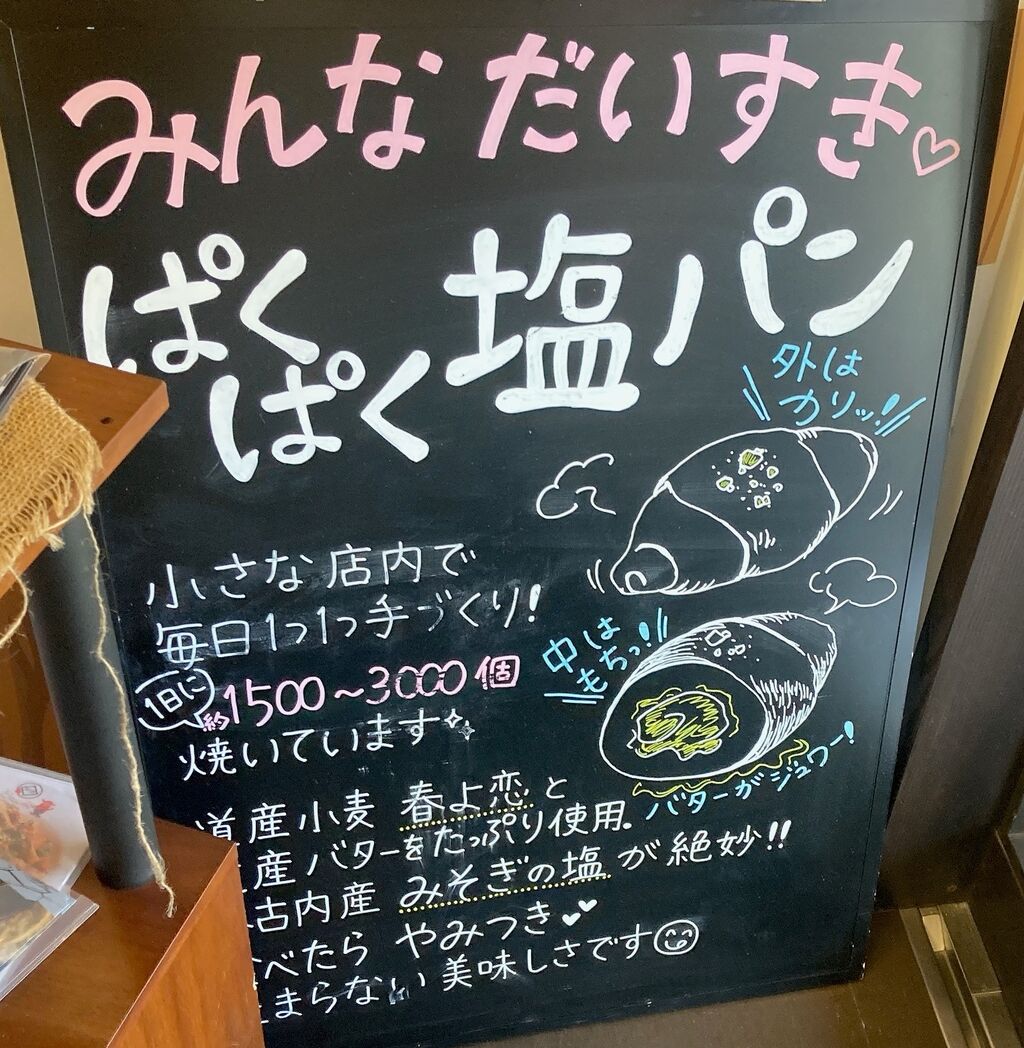 みんなだいすき♡
ぱくぱく塩パン
外は
カリッ!
小さな店内で
毎日1つ1つ手づくり!
1日に
約1500～3000個
焼いています
中は
もちっ!!
バターがジュワー!
道産小麦 春よ恋と
産バターをたっぷり使用.
古内産 みそぎの塩が絶妙!!
べたら やみつき
まらない美味しさです